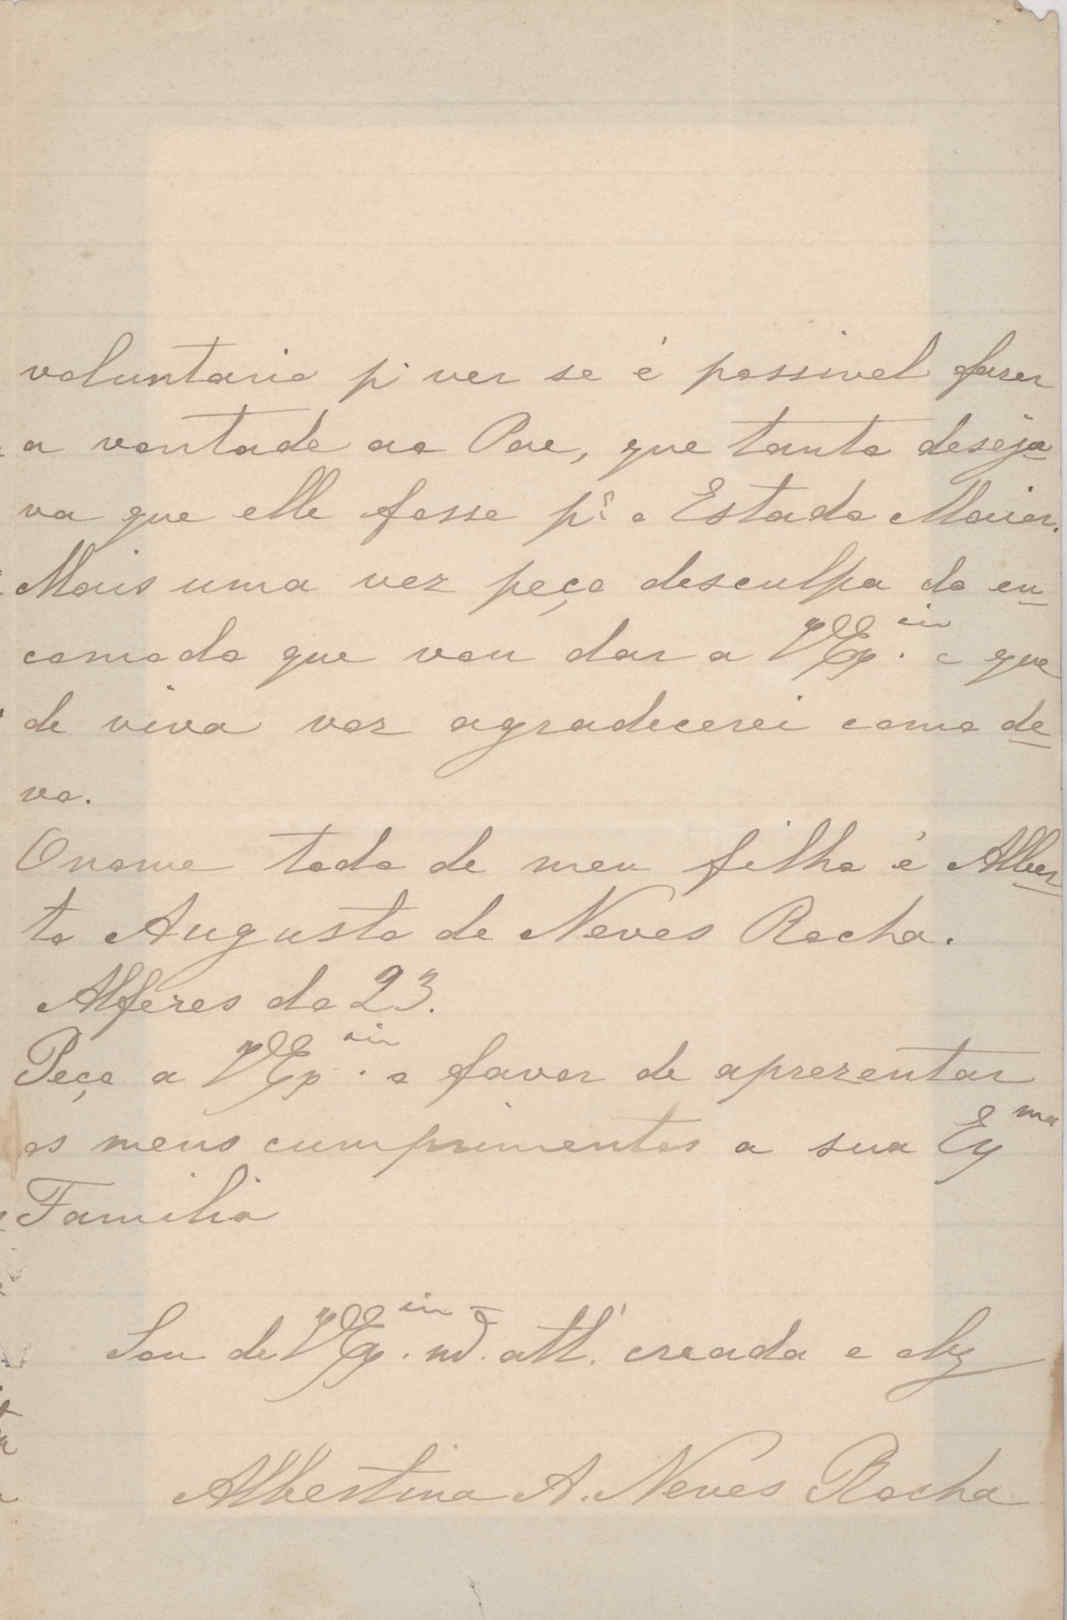 voluntario pª ver se é possivel faser
a vontade ao Pae, que tanto deseja-
va que elle fosse pª o Estado Maior.
Mais uma vez peço desculpa do en-
comodo que vou dar a V Ex.cia e que
de viva voz agradecerei como de-
vo.
O nome todo de meu filho é Alber-
to Augusto de Neves Rocha.
Alferes do 23.
Peço a V Ex.cia o favor de aprezentar
os meus cumprimentos a sua Exma
Familia
Sou de V Ex.cia mto. attª. creada e obg
Albertina A. Neves Rocha